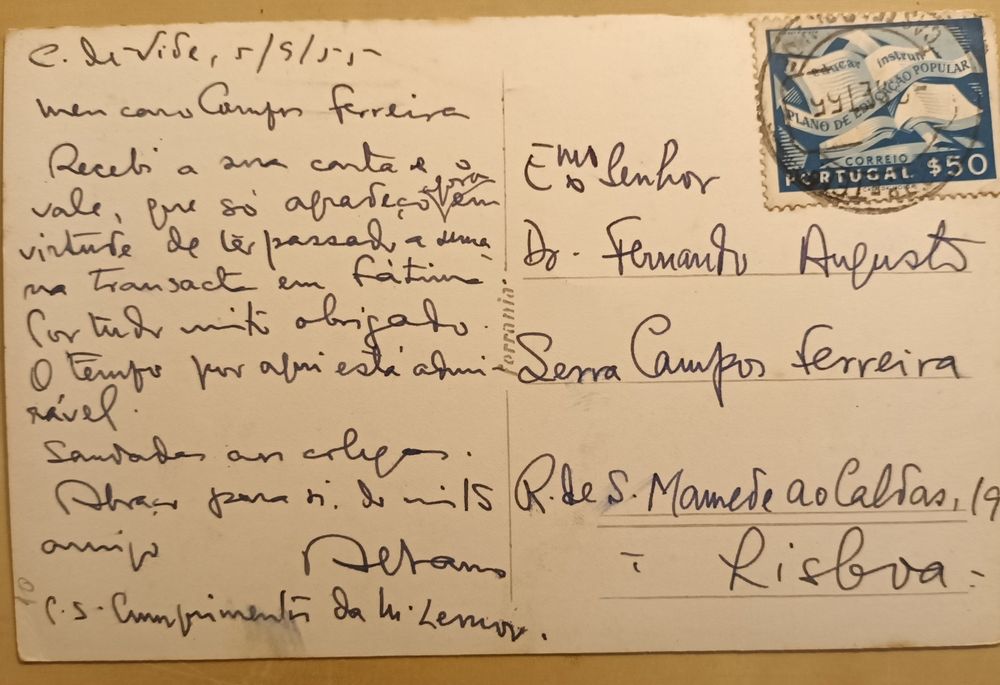 C. de Vide, 5/9/55
meu caro Campos Ferreira
Recebi a sua carta e o
vale, que só agradeço agora em
virtude de ter passado a sema
na transacta em Fátima
Por tudo mito obrigado.
O tempo por aqui está admi-
rável.
Saudades aos colegas.
Abraço para si, do mtº
amigo
P.S. Cumprimentos da M. Lemos.
Ferrania
Emº Senhor
Dr. Fernando Augusto
Serra Campos Ferreira
R. de S. Mamede ao Caldas, 19
Lisboa
educar instruir
PLANO DE EDUCAÇÃO POPULAR
CORREIO
PORTUGAL $50
10